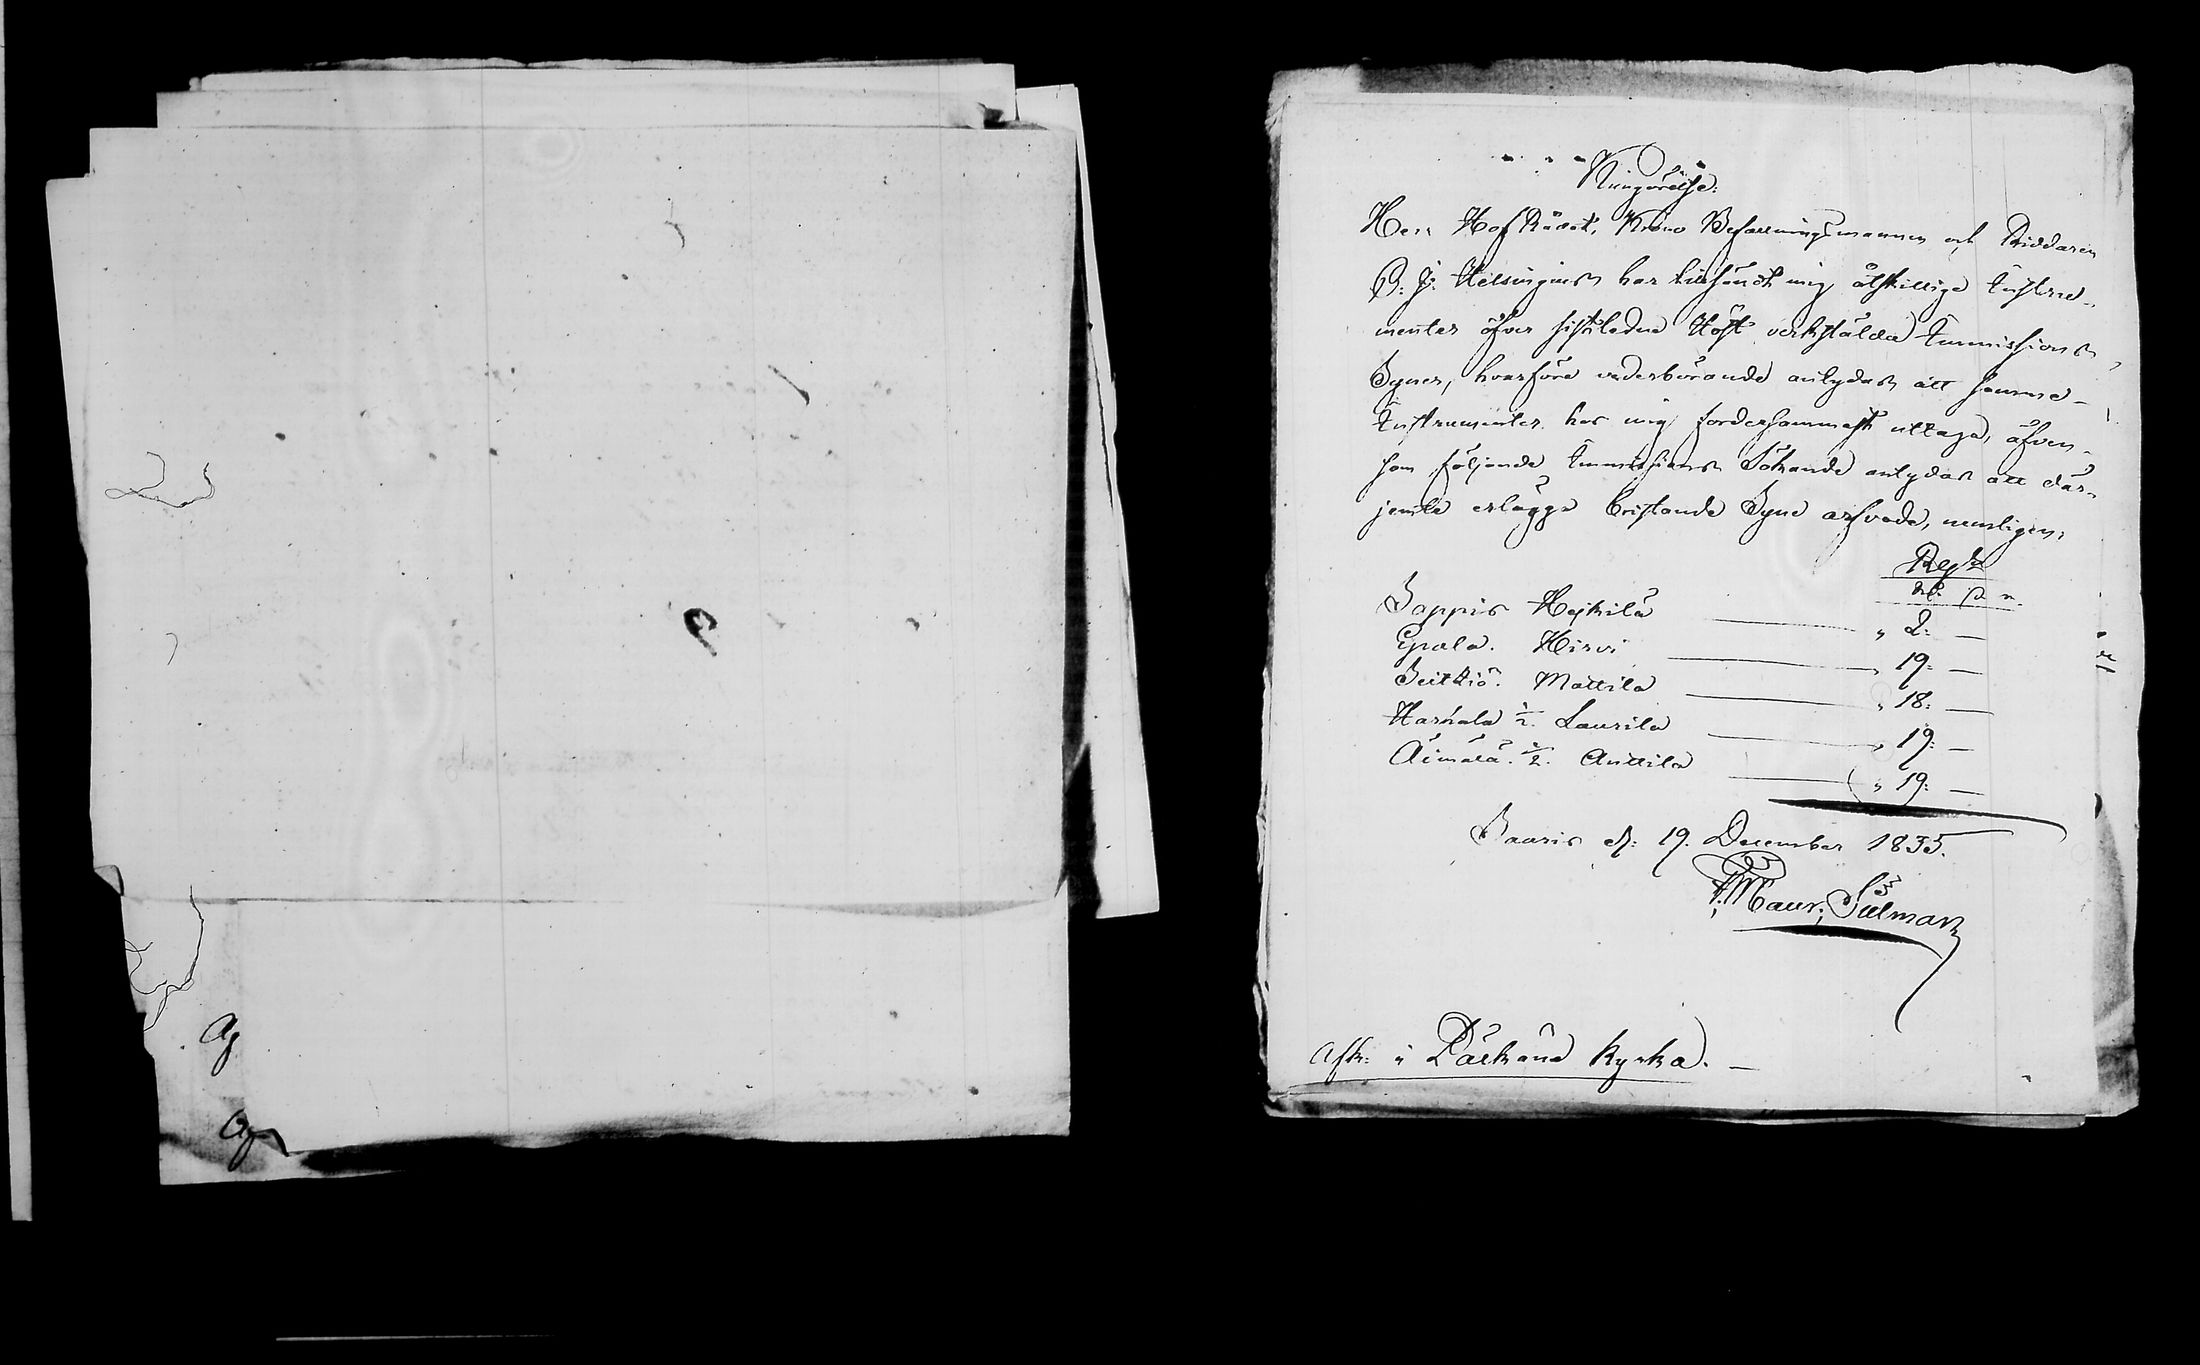 Kungörelse.
Herr HofRådet, Krono Befallningsmannen och Riddaren
O: J: Helsingius har tillsändt mig åtskillige Instru-
menter öfver sistledne Höst verkstälda Immissions
Syner, hvarföre vederbörande antydas att samma
Instrumenter hos mig fordersammast uttaga, äfven-
som följande Immissions Sökande antydas att där-
jemte erlägga bristande Syne arfvode, nemligen;
Rubl
S
Sappis Hejkilä " 2: —
Epaala. Hirvi " 19: —
Seittiö. Mattila " 18: —
Harhala ½. Laurila " 19: —
Äimälä. ½. Anttila " 19: —
Saaris d: 19. December 1835.
Maur: Silman
Afk: i Pälkäne Kyrka. —
Af
Af